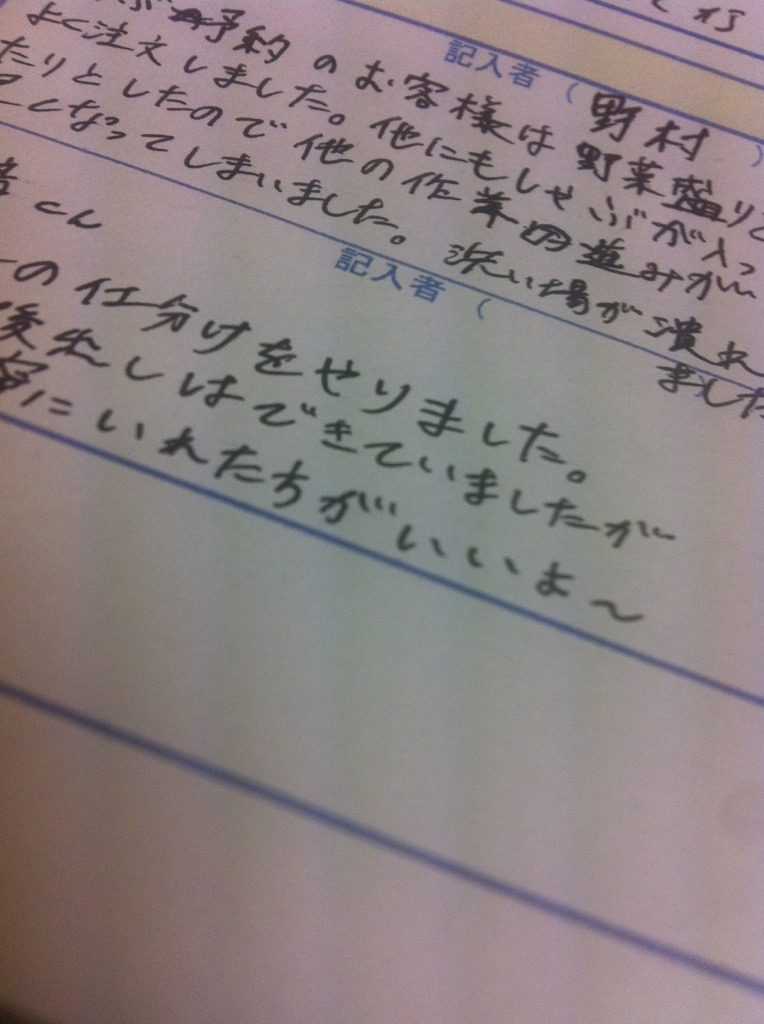 記入者 ( 野村 )
ぶ予約のお客様は野菜盛りを
よく注文しました。他にもしゃぶが入っ
たりとしたので他の作業の進みが
となってしまいました。洗い場が潰れ
ました
こん
記入者 (
の仕分けをやりました。
しはできていましたが
にいれたちがいいよ〜